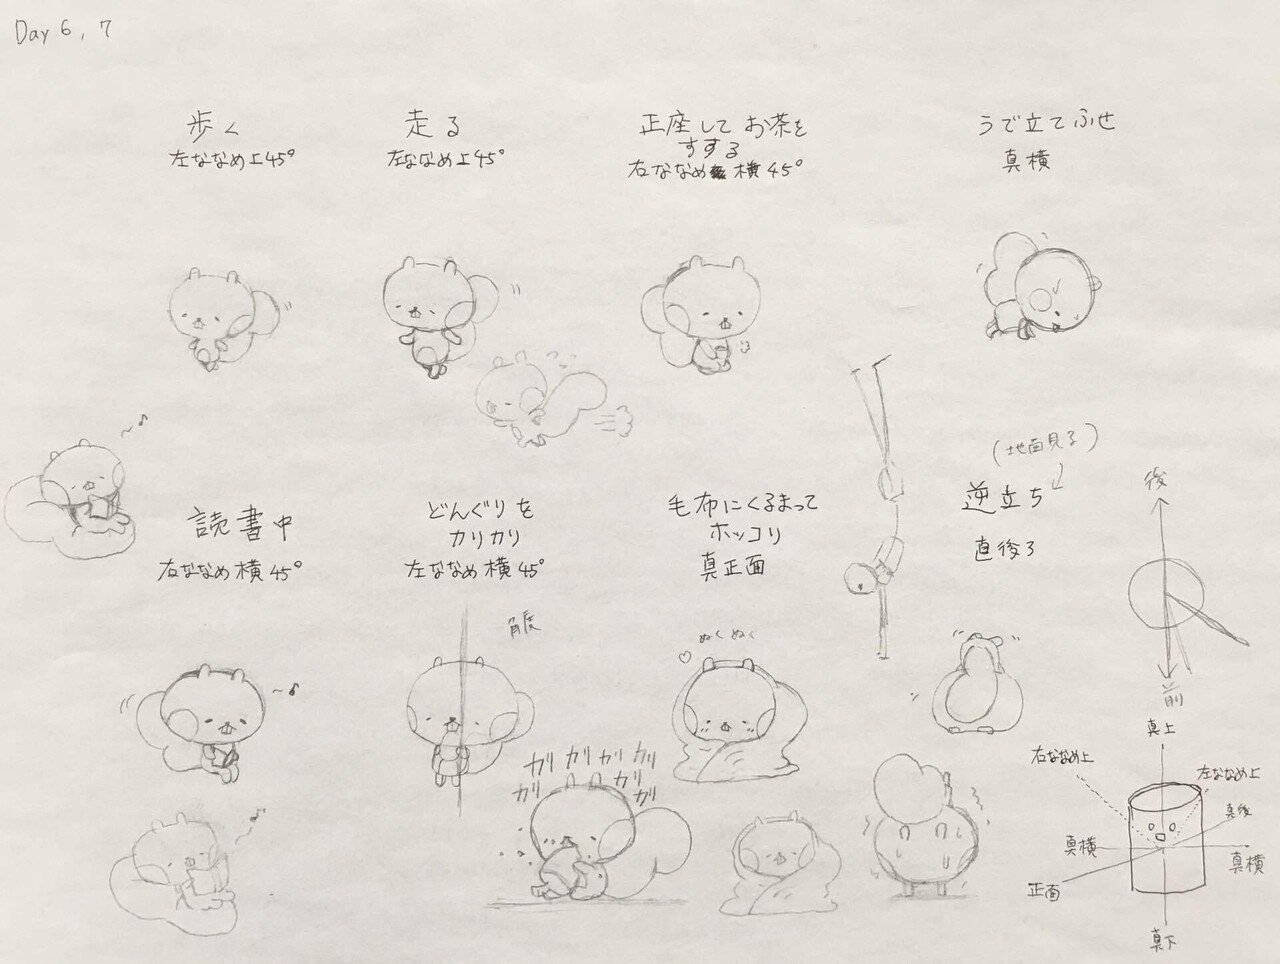 Day 6, 7
歩く
左ななめ上45°
走る
左ななめ上45°
正座して お茶を
すする
右ななめ横45°
うで立てふせ
真横
(地面見る)
逆立ち
直後ろ
読書中
右ななめ横45°
どんぐりを
カリカリ
左ななめ横45°
角度
毛布にくるまって
ホッコリ
真正面
ぬくぬく
カリカリカリカリ
カリカリカリ
後
前
真上
右ななめ上
左ななめ上
真後
真横
真横
正面
真下